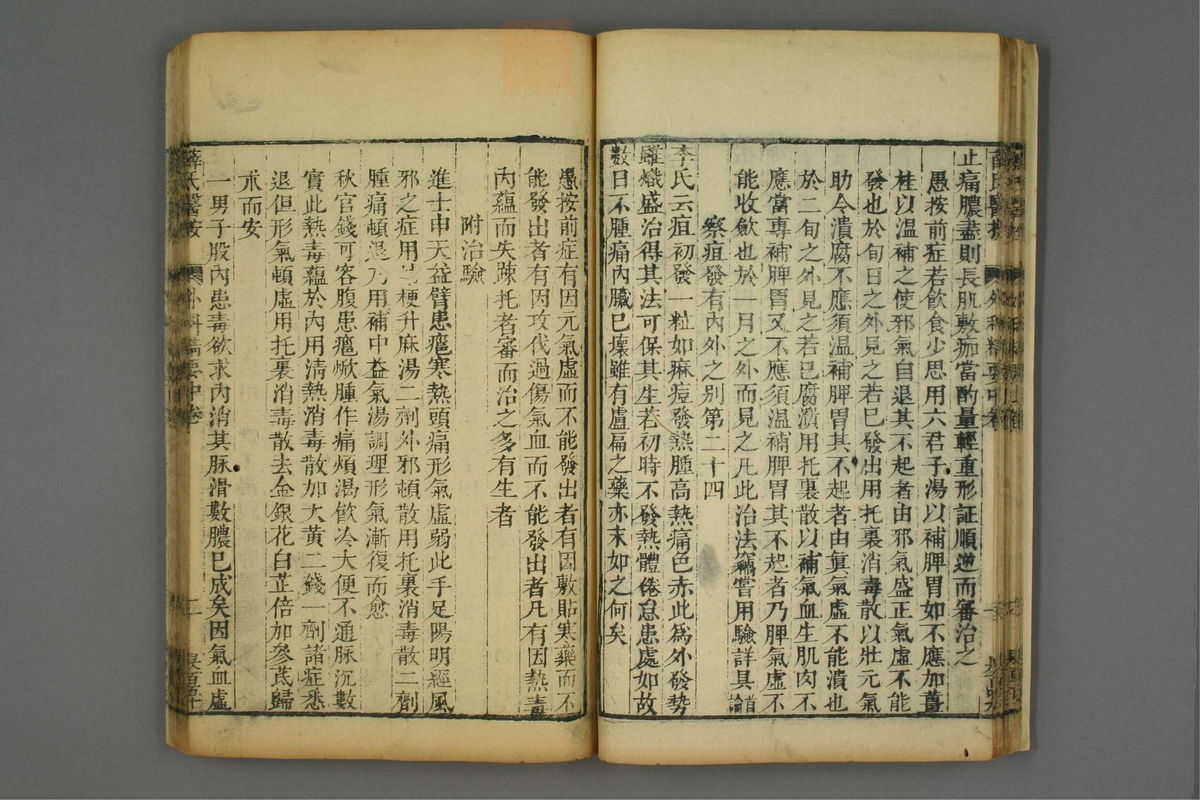 止痛膿盡則長肌敷痂當酌量輕重形証順逆而審治之
愚按前症若飲食少思用六君子湯以補脾胃如不應加薑
桂以溫補之使邪氣自退其不起者由邪氣盛正氣虛不能
發也於旬日之外見之若已發出用托裏消毒散以壯元氣
助令潰腐不應須溫補脾胃其不起者由眞氣虛不能潰也
於二旬之外見之若已腐潰用托裏散以補氣血生肌肉不
應當專補脾胃又不應須溫補脾胃其不起者乃脾氣虛不
能收斂也於一月之外而見之凡此治法竊嘗用驗詳具首論
察疽發有內外之別第二十四
李氏云疽初發一粒如麻痘發熱腫高熱痛色赤此為外發勢
雖熾盛治得其法可保其生若初時不發熱體倦怠患處如故
數日不腫痛內臟已壞雖有盧扁之藥亦末如之何矣
愚按前症有因元氣虛而不能發出者有因敷貼寒藥而不
能發出者有因攻伐過傷氣血而不能發出者凡有因熱毒
內蘊而失疎托者審而治之多有生者
附治驗
進士申天益臂患癰寒熱頭痛形氣虛弱此手足陽明經風
邪之症用梗升麻湯二劑外邪頓散用托裏消毒散二劑
腫痛頓退乃用補中益氣湯調理形氣漸復而愈
秋官錢可容腹患癰焮腫作痛煩渴飲冷大便不通脉沉數
實此熱毒蘊於內用清熱消毒散加大黃二錢一劑諸症悉
退但形氣頓虛用托裏消毒散去金銀花白芷倍加參芪歸
朮而安
一男子股內患毒欲求內消其脉滑數膿已成矣因氣血虛
薛氏醫按
外科精要中卷